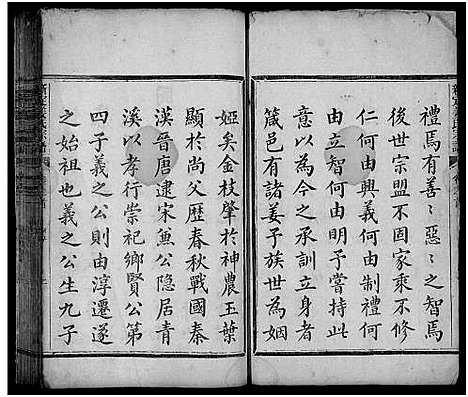 禮焉有善〻惡〻之智焉
後世宗盟不固家乘不修
仁何由興義何由制禮何
由立智何由明予嘗持此
意以為今之承訓立身者
箴邑有諸姜子族世為姻
婭矣金枝肇於神農玉葉
顯於尚父歷春秋戰國秦
漢晉唐逮宋無公隱居青
溪以孝行崇祀鄉賢公第
四子義之公則由淳遷遂
之始祖也義之公生九子